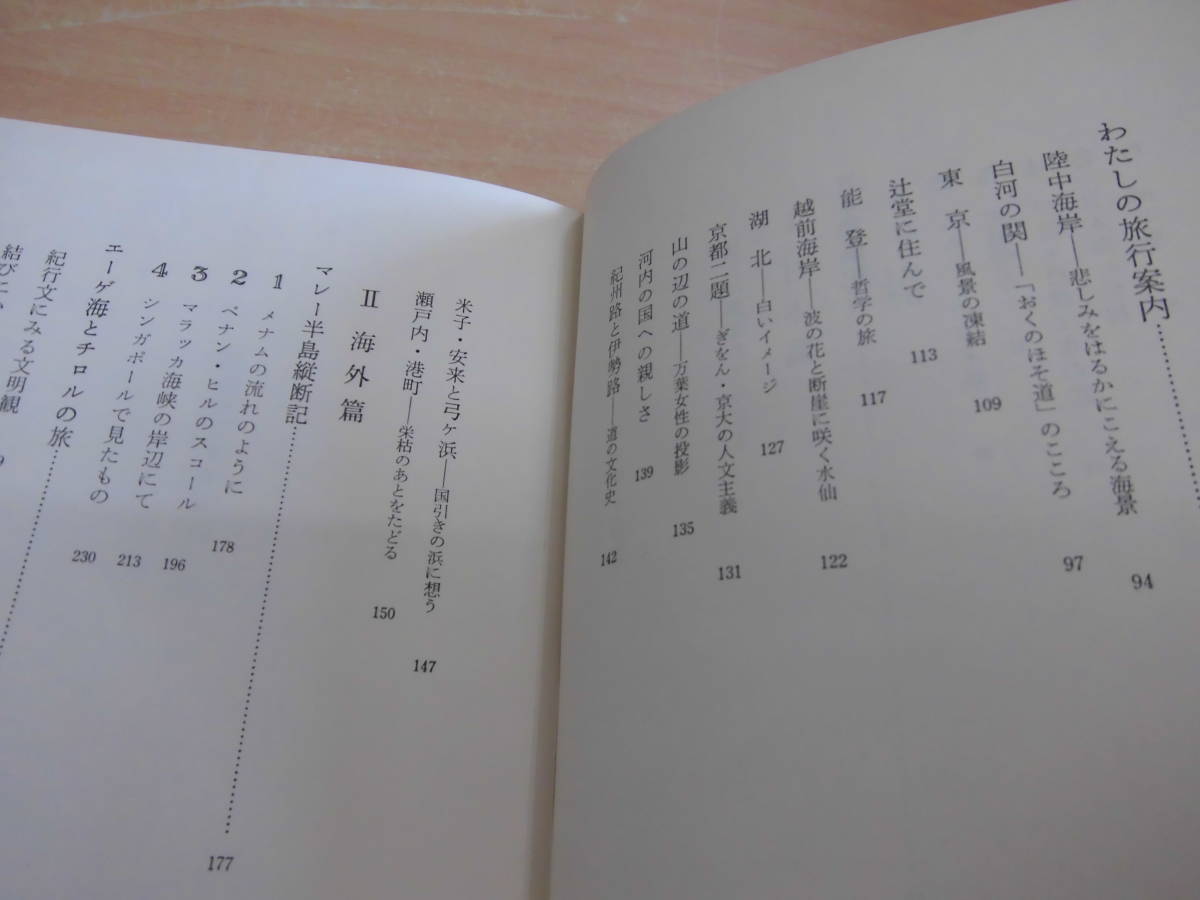 わたしの旅行案内…………
陸中海岸——悲しみをはるかにこえる海景 94
白河の関——「おくのほそ道」のこころ 97
東京——風景の凍結 109
辻堂に住んで 113
能登——哲学の旅 117
越前海岸——波の花と断崖に咲く水仙 122
湖北——白いイメージ 127
京都二題——ぎをん・京大の人文主義 131
山の辺の道——万葉女性の投影 135
河内の国への親しさ 139
紀州路と伊勢路——道の文化史 142
米子・安来と弓ヶ浜——国引きの浜に想う 147
瀬戸内・港町——栄枯のあとをたどる 150
Ⅱ 海外篇
マレー半島縦断記………… 177
1 メナムの流れのように 178
2 ペナン・ヒルのスコール 196
3 マラッカ海峡の岸辺にて 213
4 シンガポールで見たもの 230
エーゲ海とチロルの旅…………
紀行文にみる文明観